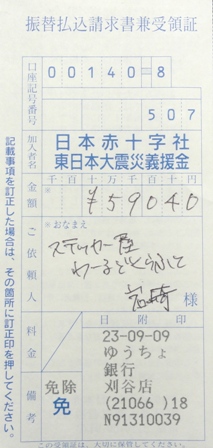 振替払込請求書兼受領証
口座記号番号
00140=8
507
加入者名
日本赤十字社
東日本大震災義援金
金額
千百十万千百十円
※
¥59040
ご依頼人
※おなまえ
ステッカー屋
岩崎
料金
備考
免除
免
日附印
23-09-09
ゆうちょ
銀行
刈谷店
(21066 )18
N91310039
記載事項を訂正した場合は、その箇所に訂正印を押してください。
この受領証は、大切に保管してください。